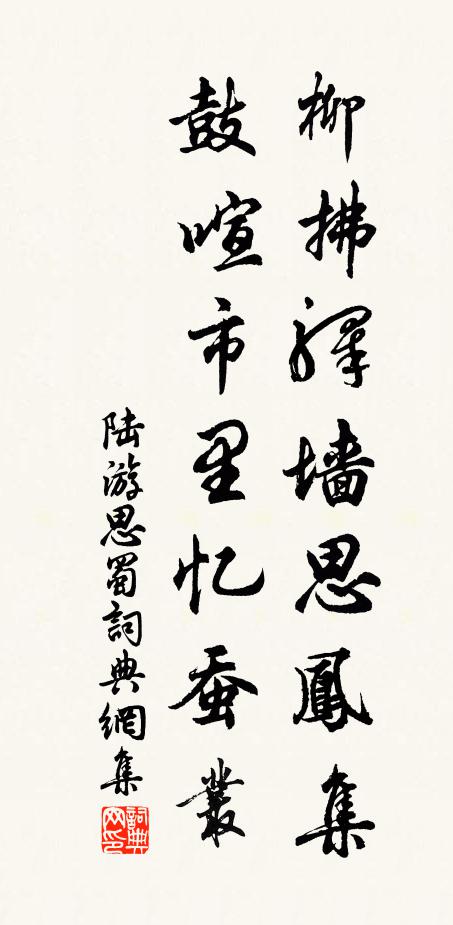 柳拂驛墙思鳳集
鼓喧市里忆蚕叢
陆游思蜀詞典網集
詞典网印